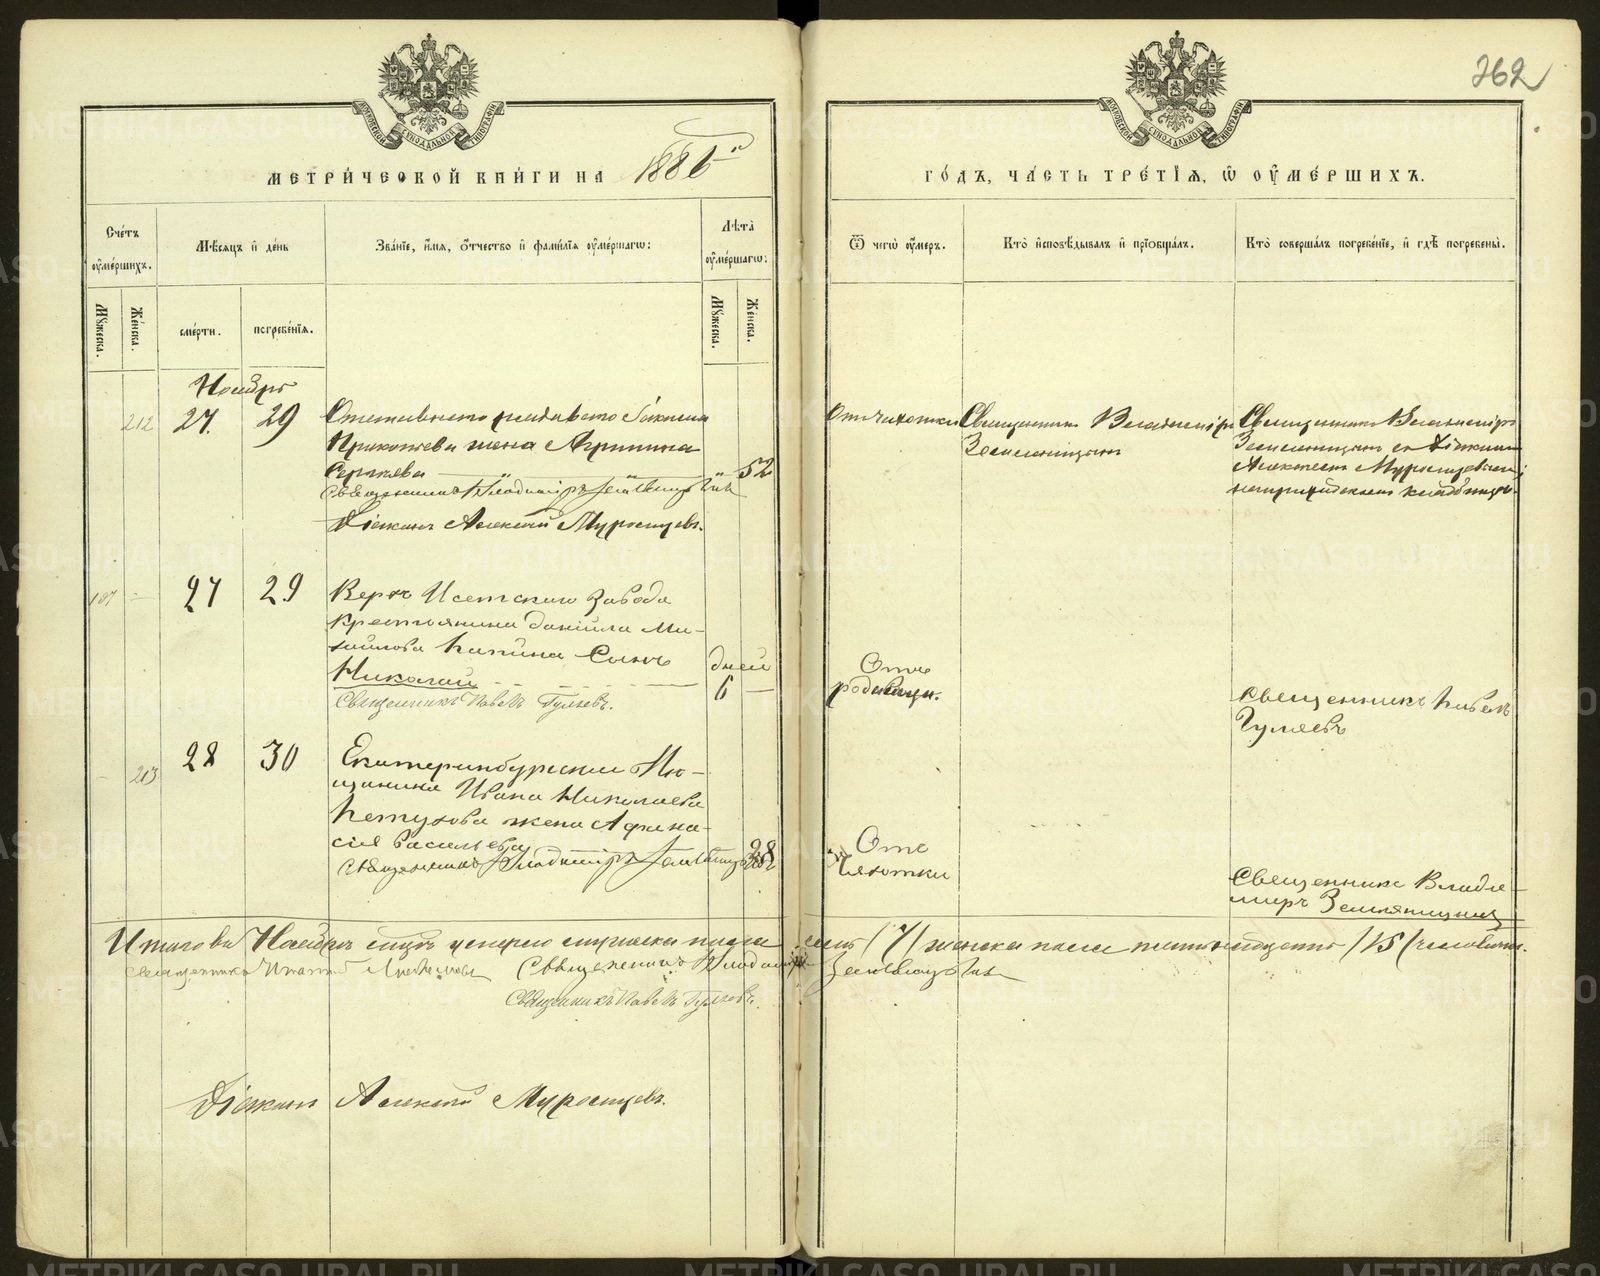 262
МЕТРИ́ЧЕСКОЙ КНИ́ГИ НА 1886-й
ГО́ДЪ, ЧА́СТЬ ТРЕ́ТІѦ, Ѡ҆ ОУ҆МЕ́РШИХЪ.
Сче́тъ оу҆ме́ршихъ.
Мѣ́сѧцъ и҆ де́нь
Зва́нїе, и҆́мѧ, ѻ҆́тчество и҆ фами́лїѧ оу҆ме́ршагѡ:
Лѣта̀ оу҆ме́ршагѡ:
Ѿ чегѡ̀ оу҆́меръ.
Кто̀ и҆сповѣ́дывалъ и҆ прїѡбща́лъ.
Кто̀ соверша́лъ погребе́нїе, и҆ гдѣ̀ погребены̀.
Мꙋ́жеска.
Же́нска.
сме́рти.
погребе́нїѧ.
Мꙋ́жеска.
Же́нска.
Ноябрь
212 27. 29 Отставнаго рядоваго
Прокопьева жена Агрипина
Сергѣева 52
Священникъ Владиміръ Землѧницынъ
Діаконъ Алексѣй Муромцевъ.
Отъ чахотки
Священникъ Владиміръ
Земляницынъ
Священникъ Владиміръ
Земляницынъ съ Діакономъ
Алексѣемъ Муромцевымъ
на приходскомъ кладбищѣ.
107 27 29 Верхъ Исетскаго Завода
крестьянина Даніила Ми-
хайлова Папина сынъ
Николай дней 6
Священникъ Павелъ Гуляевъ.
Отъ
родимца.
Священникъ Павелъ
Гуляевъ
213 28 30 Екатеринбургскаго Мѣ-
щанина Ивана Николаева
Петухова жена Афана-
сія Васильева 28
Священникъ Владиміръ Земляницынъ
Отъ
чахотки
Священникъ Влади-
миръ Земляницынъ
Итого въ Ноябрѣ мцѣ умерло мужеска пола семь /7/ женска пола пятнадцать /15/ человѣкъ.
Священникъ Игнатій Священникъ Владиміръ Земляницынъ
Священникъ Павелъ Гуляевъ.
Діаконъ Алексѣй Муромцевъ.
METRIKI.GASO-URAL.RU